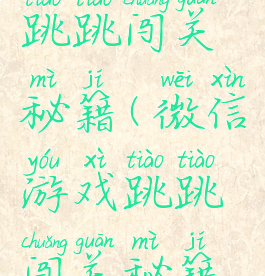 tiào tiào chuǎng guān
跳跳闯关
mì jí wēi xìn
秘籍(微信
yóu xì tiào tiào
游戏跳跳
chuǎng guān mì jí
闯关秘籍